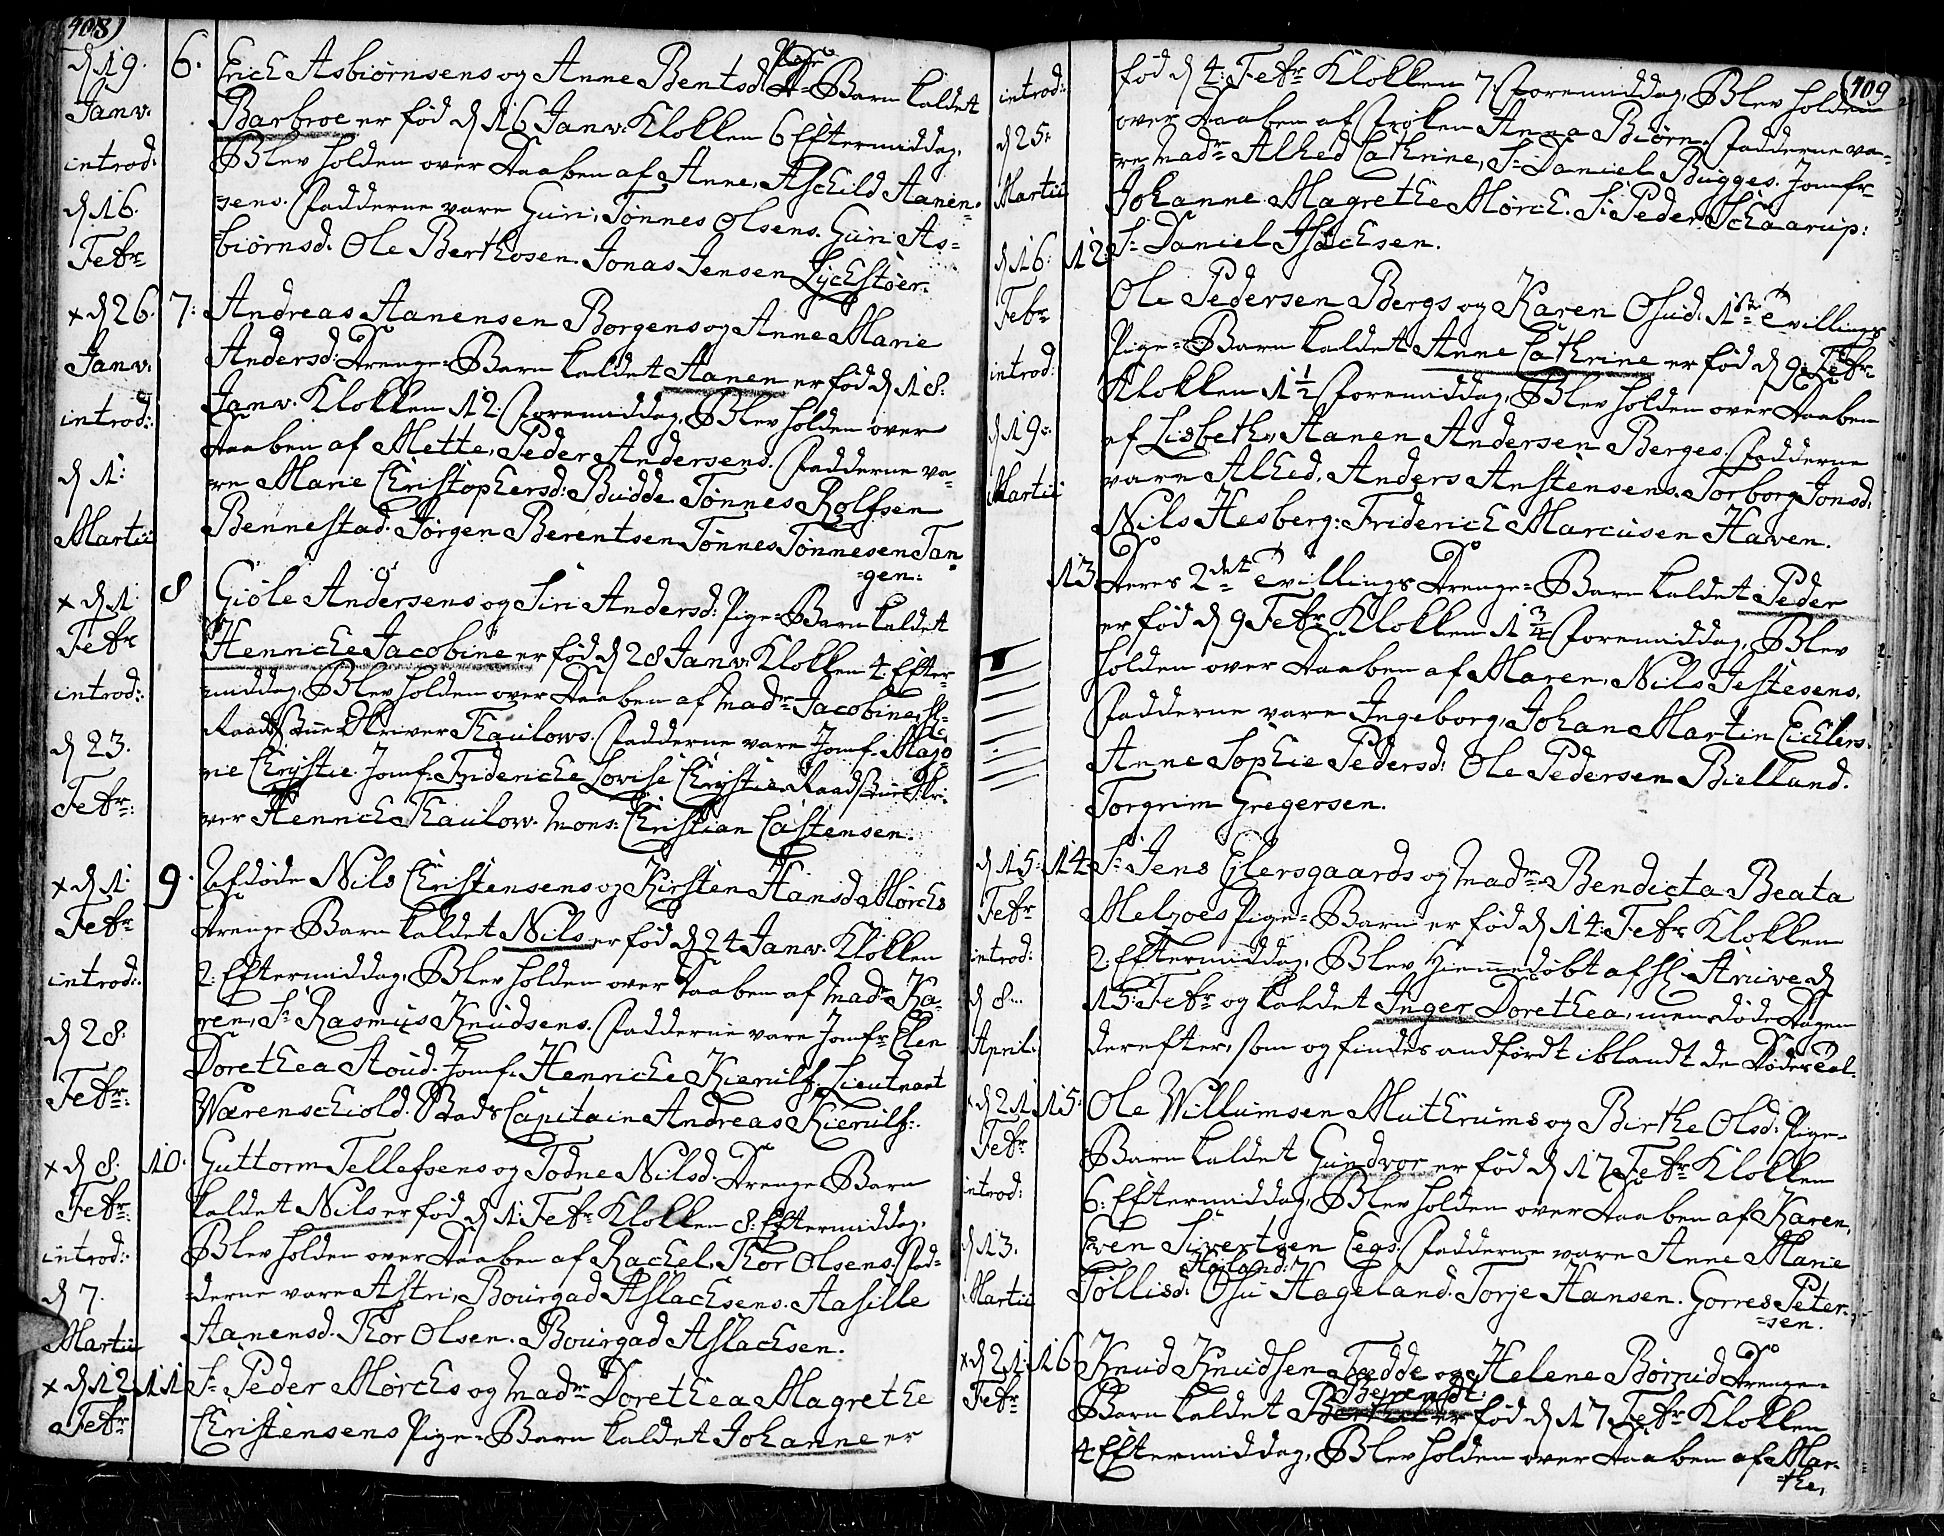 408)
d 19. Janv. introd: d 16. Febr:
6. Erich Asbiørnsens og Anne Bentsd: Pige-Barn kaldet
Barbroe er fød d 16 Janv. Klokken 6 Eftermiddag,
Blev holden over Daaben af Anne, Aschild Aanen-
sens. Fadderne vare Guri, Tønnes Olsens. Guri As-
biørnsd. Ole Berthosen. Jonas Jensen Lyckstøer.
x d 26. Janv. introd: d 1: Martii
7: Andreas Aanensen Borgens og Anne Marie
Andersd: Drenge-Barn kaldet Aanen er fød d 18.
Janv. Klokken 12 Foremiddag, Blev holden over
Daaben af Mette, Peder Andersens. Fadderne va-
re Marie Christophersd: Budde. Tønnes Rolfsen
Bennestad. Jørgen Berentsen. Tønnes Tønnesen Tan-
=gen:
x d 1. Febr introd: d 23. Febr:
8 Giøle Andersens og Siri Andersd: Pige-Barn kaldet
Henriche Jacobine er fød d 28 Janv: Klokken 4 Efter-
middag, Blev holden over Daaben af Madr Jacobine, Hr.
Raadstueskriver Thaulows. Fadderne vare Jomf: Majo
rie Christie. Jomf: Frideriche Lovise Christie. Raadstueskri-
ver Henrich Thaulow. Mons: Christian Castensen.
x d 1. Febr introd: d 28: Febr:
9. Afdøde Nils Christensens og Kirsten Hansd Mørchs
Drenge Barn kaldet Nils er fød d 24 Janv. Klokken
2. Eftermiddag, Blev holden over Daaben af Madr Ka-
ren, Sr Rasmus Knudsens. Fadderne vare Jomfr Elen
Dorethea Stoud. Jomf: Henriche Kierulf. Lieutnant
Wærenschiold. Stads Capitain Andreas Kierulf:
x d 8. Febr: introd: d 7. Martii
10. Guttorm Tellefsens og Todne Nilsd. Drenge Barn
kaldet Nils er fød d 1. Febr Klokken 8. Eftermiddag,
Blev holden over Daaben af Rachel, Thor Olsens. Fad-
derne vare Astri, Bourgad Aslachsens. Aasille
Aanensd. Thor Olsen. Bourgad Aslachsen.
x d 12 Febr
11 Sr Peder Mørchs og Madr Dorethea Magrethe
Christensens Pige-Barn kaldet Johanne er
(409
introd: d 25: Martii
fød d 4: Febr Klokken 7. Foremiddag, Blev holden
over Daaben af Frøken Anna Biørn. Fadderne va-
re Madr Alhed Cathrine, Sr Daniel Bugges. Jomfr
Johanne Magrethe Mørch. Sr Peder Schaarup:
Sr Daniel Isachsen.
d 16 Febr introd: d 19. Martii
12: Ole Pedersen Bergs og Karen Osud. 1ste Tvillings
Pige-Barn kaldet Anne Cathrine er fød d 9: Febr.
Klokken 1 1/2 Foremiddag, Blev holden over Daaben
af Lisbeth, Aanen Andersen Berges. Fadderne
vare Alhed, Anders Anstensens. Torborg Jonsd:
Nils Hesberg: Friderich Marcusen Haven.
13. Deres 2det Tvillings Drenge-Barn kaldet Peder
er fød d 9 Febr Klokken 1 3/4 Foremiddag, Blev
holden over Daaben af Maren, Nils Jestesens.
Fadderne vare Ingeborg, Johan Martin Eichlers.
Anne Sophie Pedersd: Ole Pedersen Bielland.
Torgrim Gregersen.
d 15. Febr introd: d 8. April.
14. Sr Jens Eilersgaards og Madr Bendicta Beata
Melzoes Pige-Barn er fød d 14 Febr Klokken
2: Eftermiddag, Blev Hiemmedøbt af Hr Struwe d
15: Febr og kaldet Inger Dorethea, men døde Dagen
derefter, som og findes andførdt iblandt de Dødes Tal.
x d 21. Febr introd: d 13. Martii
15: Ole Willumsen Mathrums og Birthe Olsd: Pige-
Barn kaldet Gundvor er fød d 17 Febr Klokken
6: Eftermiddag, Blev holden over Daaben af Karen,
Even Sivertsen Eegs. Fadderne vare Anne Marie
Tøllisd. Osu Hageland. Torje Hansen. Gorres Peter-
=sen.
x d 21. Febr
16. Knud Knudsen Fedde og Helene Børrud Drenge-
Barn kaldet Berendt er fød d 17 Febr Klokken
4 Eftermiddag, Blev holden over Daaben af Mar-
=the,